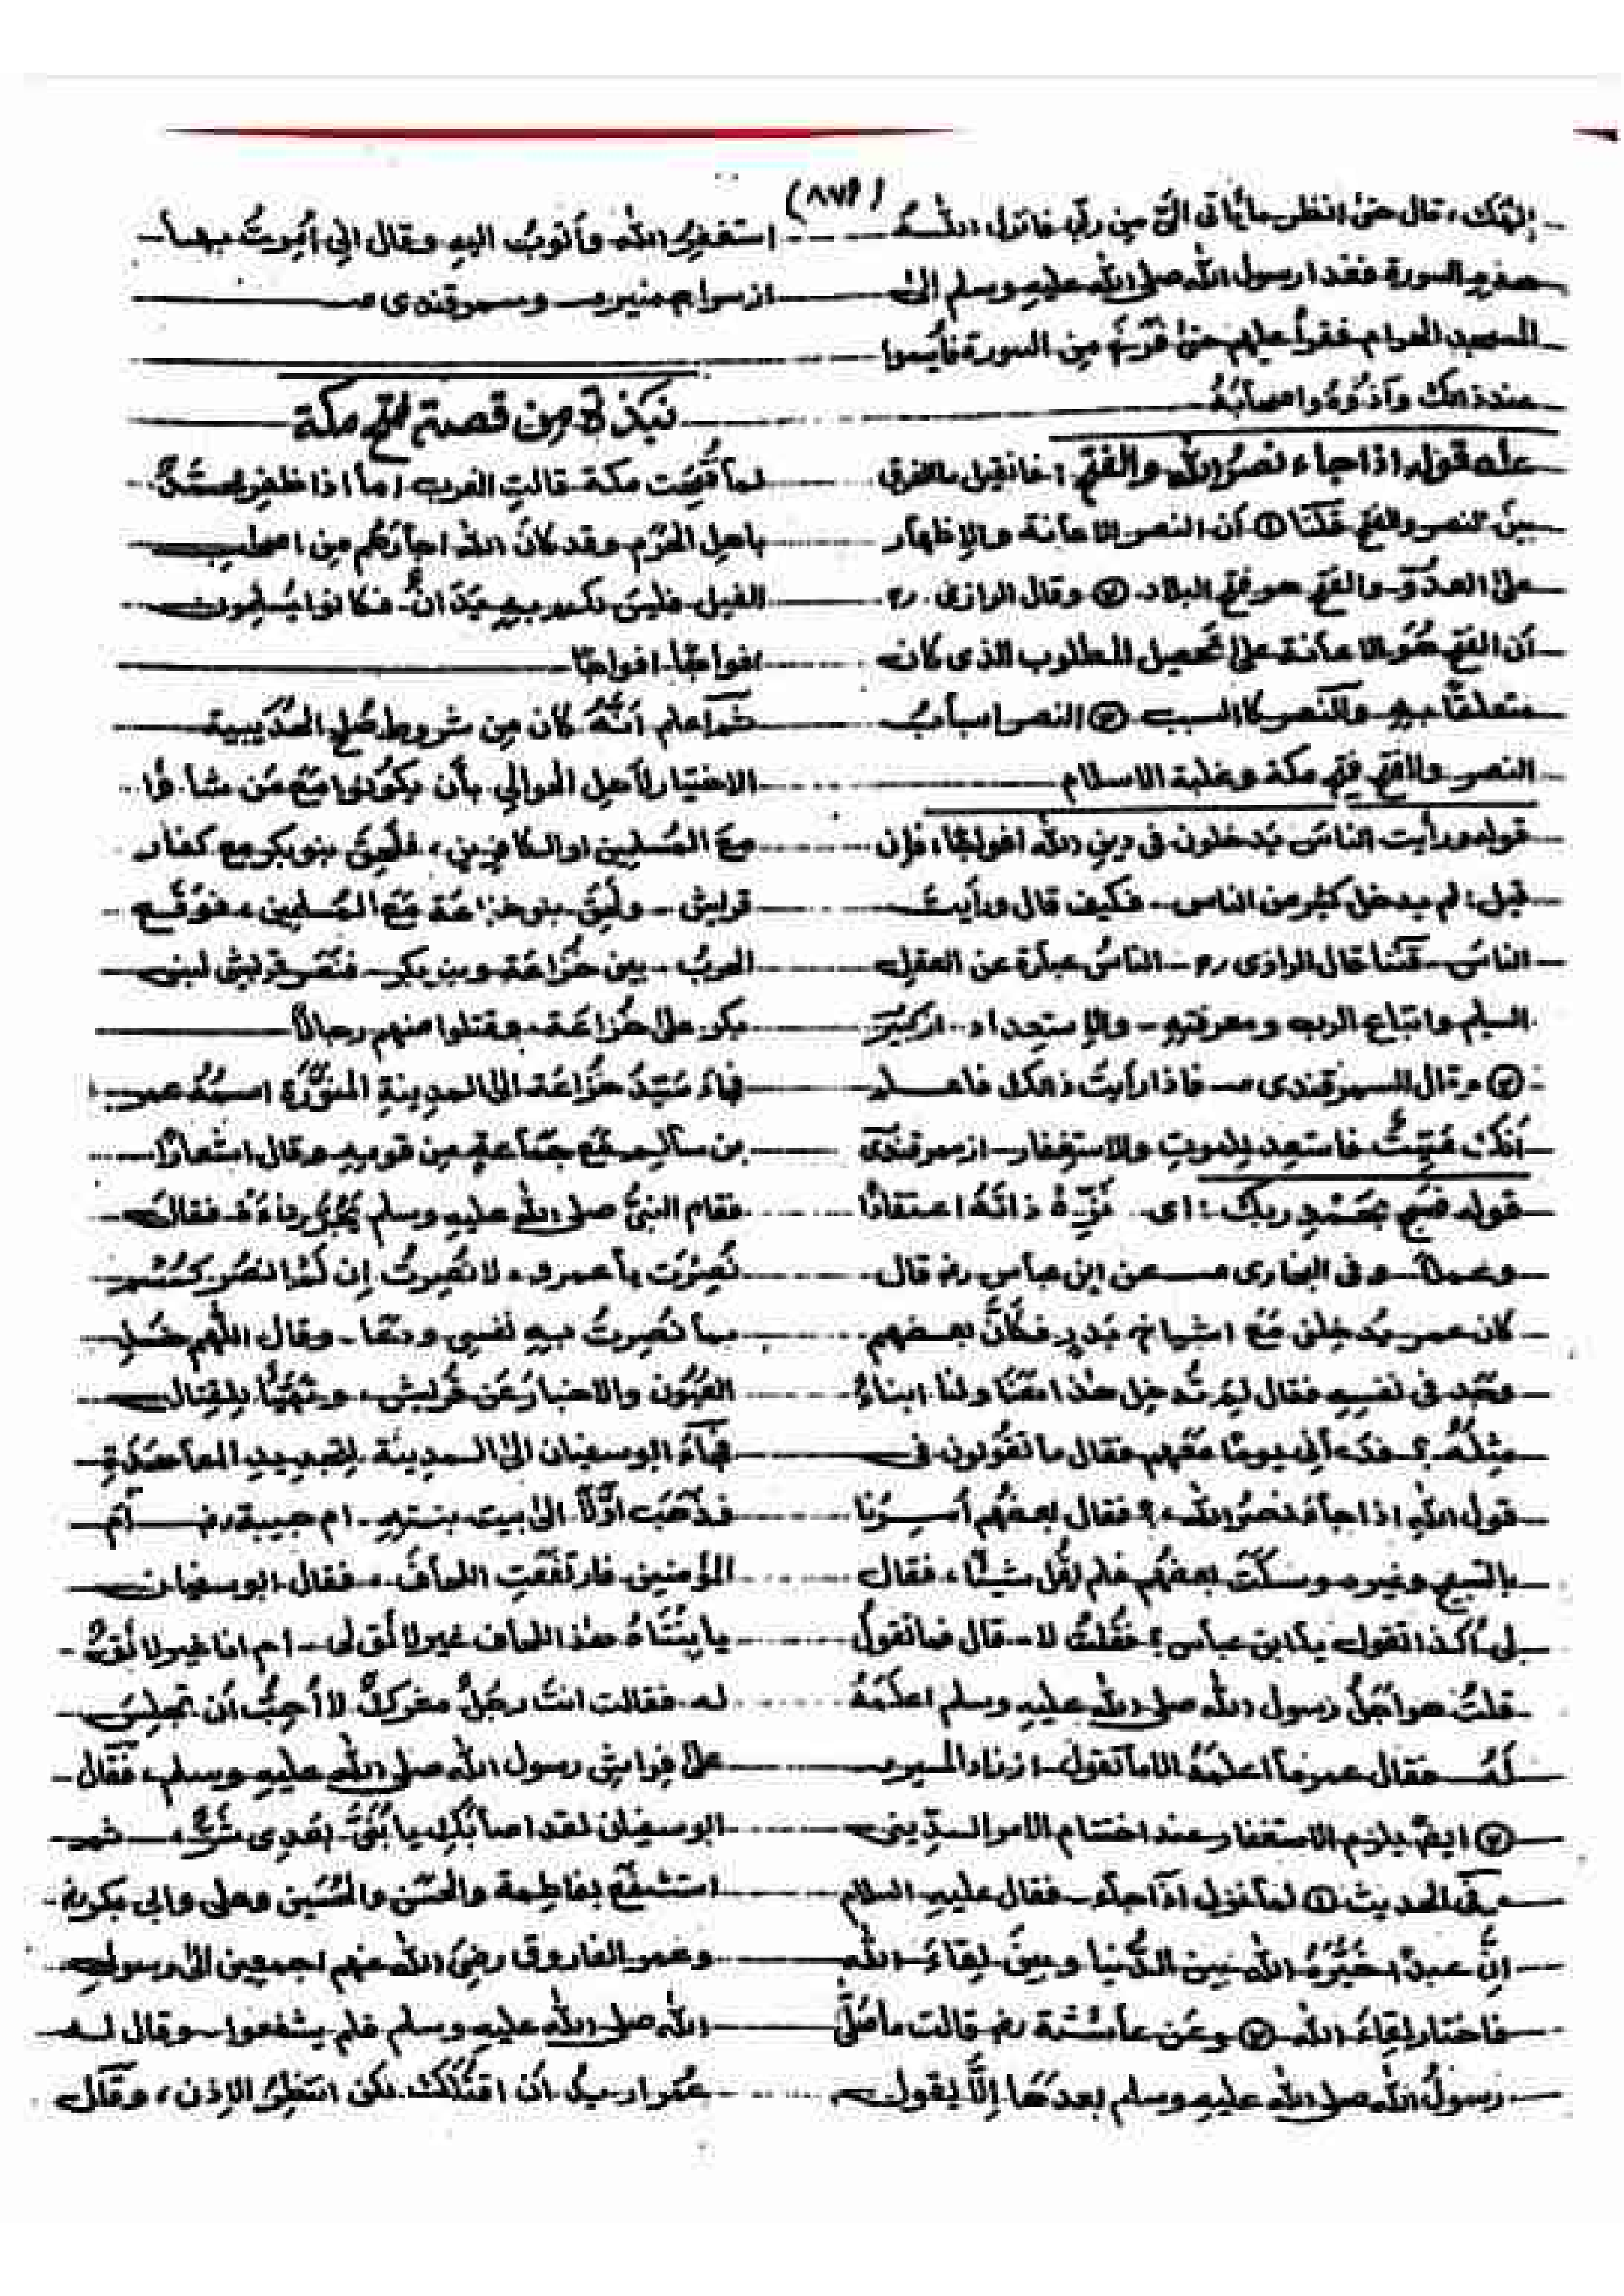 (۸۷۹)
إلهك، قال حتیٰ انظر ما یأتی الیّ من ربّی فانزل اللہ
هذه السورة فغدا رسول اللہ صلی اللہ علیہ وسلم الیٰ
المسجد الحرام فقرأ علیهم حتیٰ فرغ من السورة فأیسوا
عند ذالک وآذوہ واصحابہٗ
علہ قولہ اذا جاء نصرُ اللہ والفتح: فان قیل ما الفرق
بینَ النصر والفتح قلنا ① أن النصر الاعانة والإظهار
علیٰ العدوّ والفتح هو فتح البلاد. ② وقال الرازی رح
أن الفتح هُو الاعانة علیٰ تحصیل المطلوب الذی کان
متعلقًا بہ والنصر کالسبب ③ النصر اسبابُ
النصر والفتح فتح مکة وغلبة الاسلام
قولہ ورأیت الناسَ یَدخلون فی دینِ اللہ افواجًا، فإن
قیل: لم یدخل کثیر من الناس فکیف قال ورأیتَ
الناسَ قلنا قال الرازی رح الناسُ عبارة عن العقل
السلیم واتباع الرب ومعرفتہ والإستعداد از کبیر
② قال السمرقندی فاذا رأیتَ ذالک فاعلم
أنکَ مُیِّتٌ فاستعد للموتِ والاستغفار از سمرقندی
قولہ فسبح بحَمْدِ ربک: ای نَزِّہْ ذاتَہٗ اعتقادًا
وعملًا وفی البخاری عن ابن عباس رض قال
کان عمر یُدخِلنی مَعَ اشیاخِ بَدرٍ فکأنَّ بعضهم
وجَد فی نفسہ فقال لِمَ تُدخِل هذا معَنَا ولنا ابناءٌ
مِثلُہٗ؟ فدعانی یومًا معَهم فقال ما تقولون فی
قول اللہِ اذا جاءَ نصرُ اللہ؟ فقال بعضُهم أُمِرنا
بالتسبیح وغیرہ وسکَتَ بعضُهم فلم یقُل شیئًا، فقال
لی أکذا تقول یا ابن عباس؟ فقُلتُ لا قال فما تقولُ
قلتُ هو أجَلُ رسول اللہ صلی اللہ علیہ وسلم اعلَمَہٗ
لَہٗ فقال عمر ما اعلَمُ الا ما تقول از زاد المسیر
② ایضًا یلزم الاستغفار عند اختتام الامر الدِّینی
وفی الحدیث ① لما نزل اذا جاء فقال علیہ السلام
إنَّ عبدًا خَیَّرَہُ اللہ بین الدُّنیا وبینَ لِقاءَ اللہ
فاختار لِقاءَ اللہ ② وعَن عائشة رض قالت ما صَلَّی
رسولُ اللہ صلی اللہ علیہ وسلم بعدَها إلَّا یقول
استغفِرُ اللہ وأتوبُ الیہِ وقال انی أُمِرتُ بها
از سراج منیر وسمرقندی
نبذة من قصة فتح مکة
لما فُتِحَت مکة قالتِ العرب اما اذا ظفِر محمَّدٌ
باهلِ الحَرَم وقد کانَ اللہ اجارَهُم من اصحٰبِ
الفیل فلیسَ لکم بہِ یَدَانِ فکانوا یُسْلِمون
افواجًا افواجًا
ثم اعلم أنَّہٗ کان من شروط صُلح الحُدَیبیة
الاختیار لأهل الحوالی بأن یکُونوا مَعَ مَن شاءوا
معَ المُسلمین او الکافرین، فلَحِقَ بنو بکر مع کفار
قریش ولَحِقَ بنو خزاعَة مَعَ المُسلمین، فوَقَع
الحربُ بین خُزاعَة وبنی بکر فنَصَر قریش لبنی
بکر علیٰ خُزاعَة وقتلوا منهم رجالًا
فجاءَ سَیِّدُ خُزاعَة الی المدینةِ المنوَّرَة اسمُہٗ عمر
بن سالم مَع جَماعةٍ من قومہ وقال اشعارًا
فقام النبیُّ صلی اللہ علیہ وسلم یَجُرُّ رداءَہٗ فقال
نُصِرْت یا عمرو، لا نُصِرتُ إن لَمْ انصُرکم
بما نُصِرتُ بہ نفسی وقال اللّٰهم خُذِ
العُیُون والاخبارَ عَن قُریش، وتَهَیَّأ لِلقتال
فجاءَ ابوسفیان الیٰ المدینة لِتجدیدِ المعاهدَةِ
فذَهَبَ اوَّلًا الیٰ بیت بنتہِ ام حبیبة رض أمّ
المؤمنین فارتَفَعَتِ اللحافُ، فقال ابوسفیان
یا بِنْتَاهُ هذا اللحاف غیر لائق لی ام انا غیر لائقٌ
لہ فقالت انتَ رجلٌ مشرکٌ لا أُحِبُّ أن تجلِسَ
علیٰ فِراشِ رسول اللہ صلی اللہ علیہ وسلم، فقال
ابوسفیان لقد اصابَکِ یا بُنَیَّ بَعدِی شَرٌّ، ثم
استشفَعَ بفاطِمة والحَسَن والحُسَین وعلی وابی بکر رض
وعمر الفاروق رضیَ اللہ عنهم اجمعین الیٰ رسول
اللہ صلی اللہ علیہ وسلم فلم یشفعوا وقال لہ
عُمَر ارید أن اقتُلَکَ لکن انتظِرُ الإذن، وقال